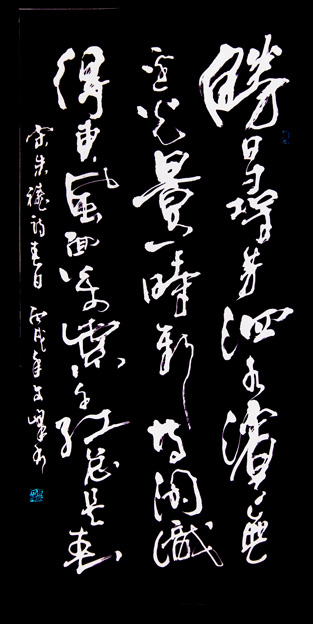 勝日尋芳泗水濱無
邊光景一時新等閒識
得東風面萬紫千紅總是春
宋朱熹詩春日 丙戌年文峰書